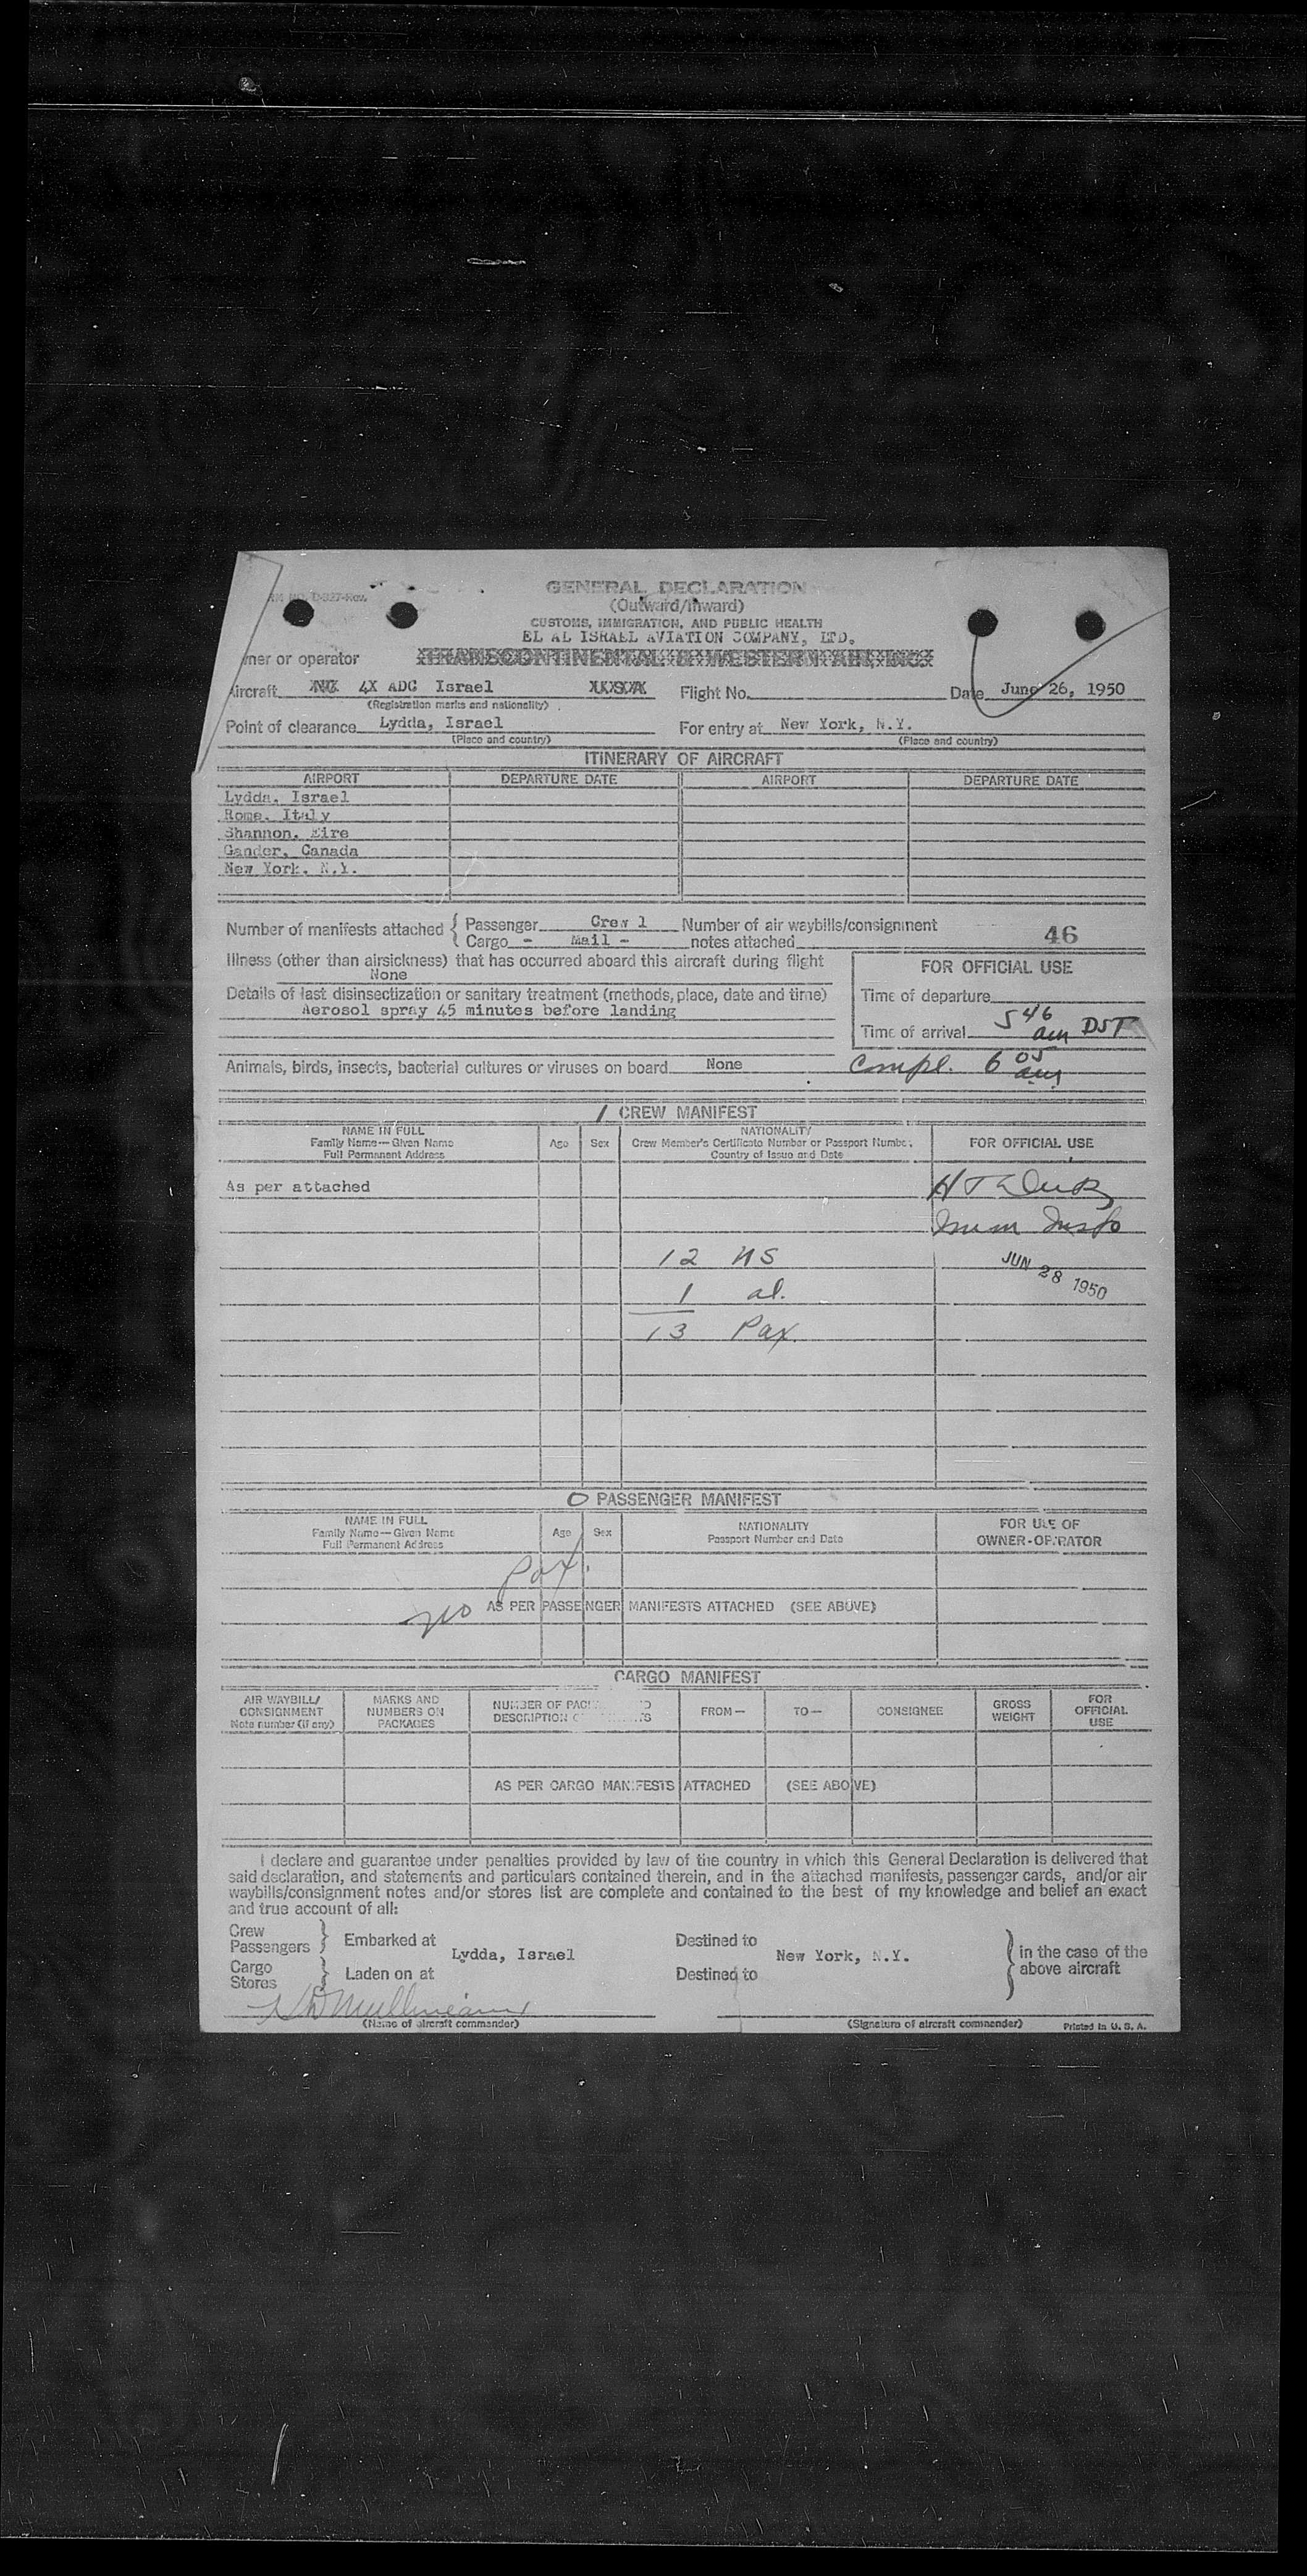 GENERAL DECLARATION
(Outward/Inward)
CUSTOMS, IMMIGRATION, AND PUBLIC HEALTH
EL AL ISRAEL AVIATION COMPANY, LTD.
ner or operator TRANSCONTINENTAL & WESTERN AIR, INC.
Aircraft NC 4X ADC Israel USA Flight No. Date June 26, 1950
(Registration marks and nationality)
Point of clearance Lydda, Israel For entry at New York, N.Y.
(Place and country) (Place and country)
ITINERARY OF AIRCRAFT
AIRPORT DEPARTURE DATE AIRPORT DEPARTURE DATE
Lydda, Israel
Rome, Italy
Shannon, Eire
Gander, Canada
New York, N.Y.
Number of manifests attached { Passenger Crew 1 Number of air waybills/consignment 46
Cargo - Mail - notes attached
Illness (other than airsickness) that has occurred aboard this aircraft during flight FOR OFFICIAL USE
None
Details of last disinsectization or sanitary treatment (methods, place, date and time) Time of departure
Aerosol spray 45 minutes before landing
Time of arrival 5 46 am DST
Animals, birds, insects, bacterial cultures or viruses on board None Compl. 6 05 am
1 CREW MANIFEST
NAME IN FULL Age Sex NATIONALITY FOR OFFICIAL USE
Family Name—Given Name Crew Member's Certificate Number or Passport Number,
Full Permanent Address Country of Issue and Date
As per attached
Imm Insp
12 NS JUN 28 1950
1 al.
13 Pax.
0 PASSENGER MANIFEST
NAME IN FULL Age Sex NATIONALITY FOR USE OF
Family Name—Given Name Passport Number and Date OWNER-OPERATOR
Full Permanent Address
no Pax.
AS PER PASSENGER MANIFESTS ATTACHED (SEE ABOVE)
CARGO MANIFEST
AIR WAYBILL/ MARKS AND NUMBER OF PAC FROM— TO— CONSIGNEE GROSS FOR
CONSIGNMENT NUMBERS ON DESCRIPTION WEIGHT OFFICIAL
Note number (if any) PACKAGES USE
AS PER CARGO MANIFESTS ATTACHED (SEE ABOVE)
I declare and guarantee under penalties provided by law of the country in which this General Declaration is delivered that
said declaration, and statements and particulars contained therein, and in the attached manifests, passenger cards, and/or air
waybills/consignment notes and/or stores list are complete and contained to the best of my knowledge and belief an exact
and true account of all:
Crew
Passengers } Embarked at Lydda, Israel Destined to New York, N.Y. } in the case of the
Cargo above aircraft
Stores } Laden on at Destined to
(Name of aircraft commander) (Signature of aircraft commander) Printed in U. S. A.